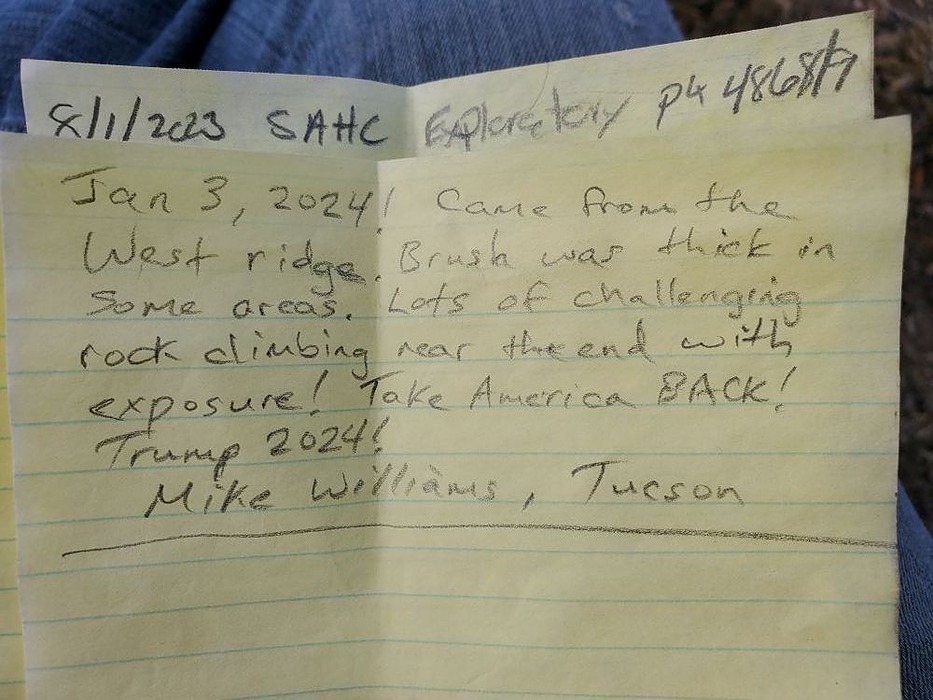 8/1/2023 SAHC Exploratory pk 4868/9
Jan 3, 2024! Came from the
West ridge. Brush was thick in
some areas. Lots of challenging
rock climbing near the end with
exposure! Take America BACK!
Trump 2024!
Mike Williams, Tucson